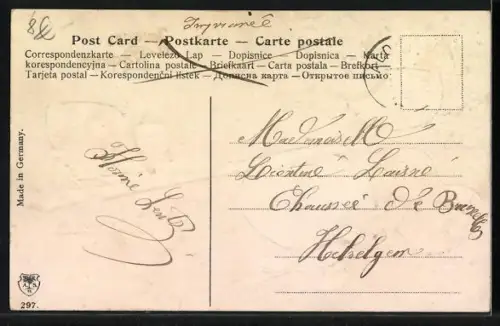 86
Imprimé
Post Card — Postkarte — Carte postale
Correspondenzkarte — Levelező-Lap — Dopisnice — Dopisnica — Karta
korespondencyjna — Cartolina postale — Briefkaart — Carta postala — Brefkort —
Tarjeta postal — Korespondenční listek — Дописна карта — Открытое письмо
Made in Germany.
Mademoiselle
Léontine
Chaussée de Bruxelles
297.